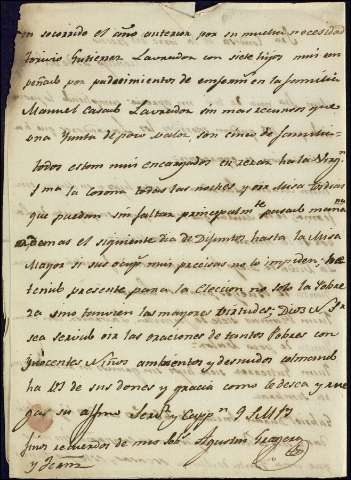 en socorrido el año anterior por su mucha necesidad
Torivio Gutierrez Lavrador con siete hijos mui em
peñado por padecimientos de enfermd en la familia
Manuel Casado Lavrador sin mas recursos que
una Yunta de poco valor, son cinco de familia
todos estan mui encargados en rezar ha la Virgn
Sma la corona todas las noches y oir Misa todas
que puedan sin faltar principalmte pasado mañana
ademas el siguiente dia de Difuntos hasta la Misa
Mayor si sus ocupns mui precisas no lo impiden;
tenido presente para la Eleccion no solo la Pobre
za sino tuviren las mayores Virtudes; Dios N. Sr
sea servido oir las oraciones de tantos Pobres con
ynocentes Niños ambrientos y desnudos colmando
ha Vd de sus dones y gracia como le desea y rue
ga su affmo Servr y Cappn Q S M B
finos recuerdos de mis Agustin
y